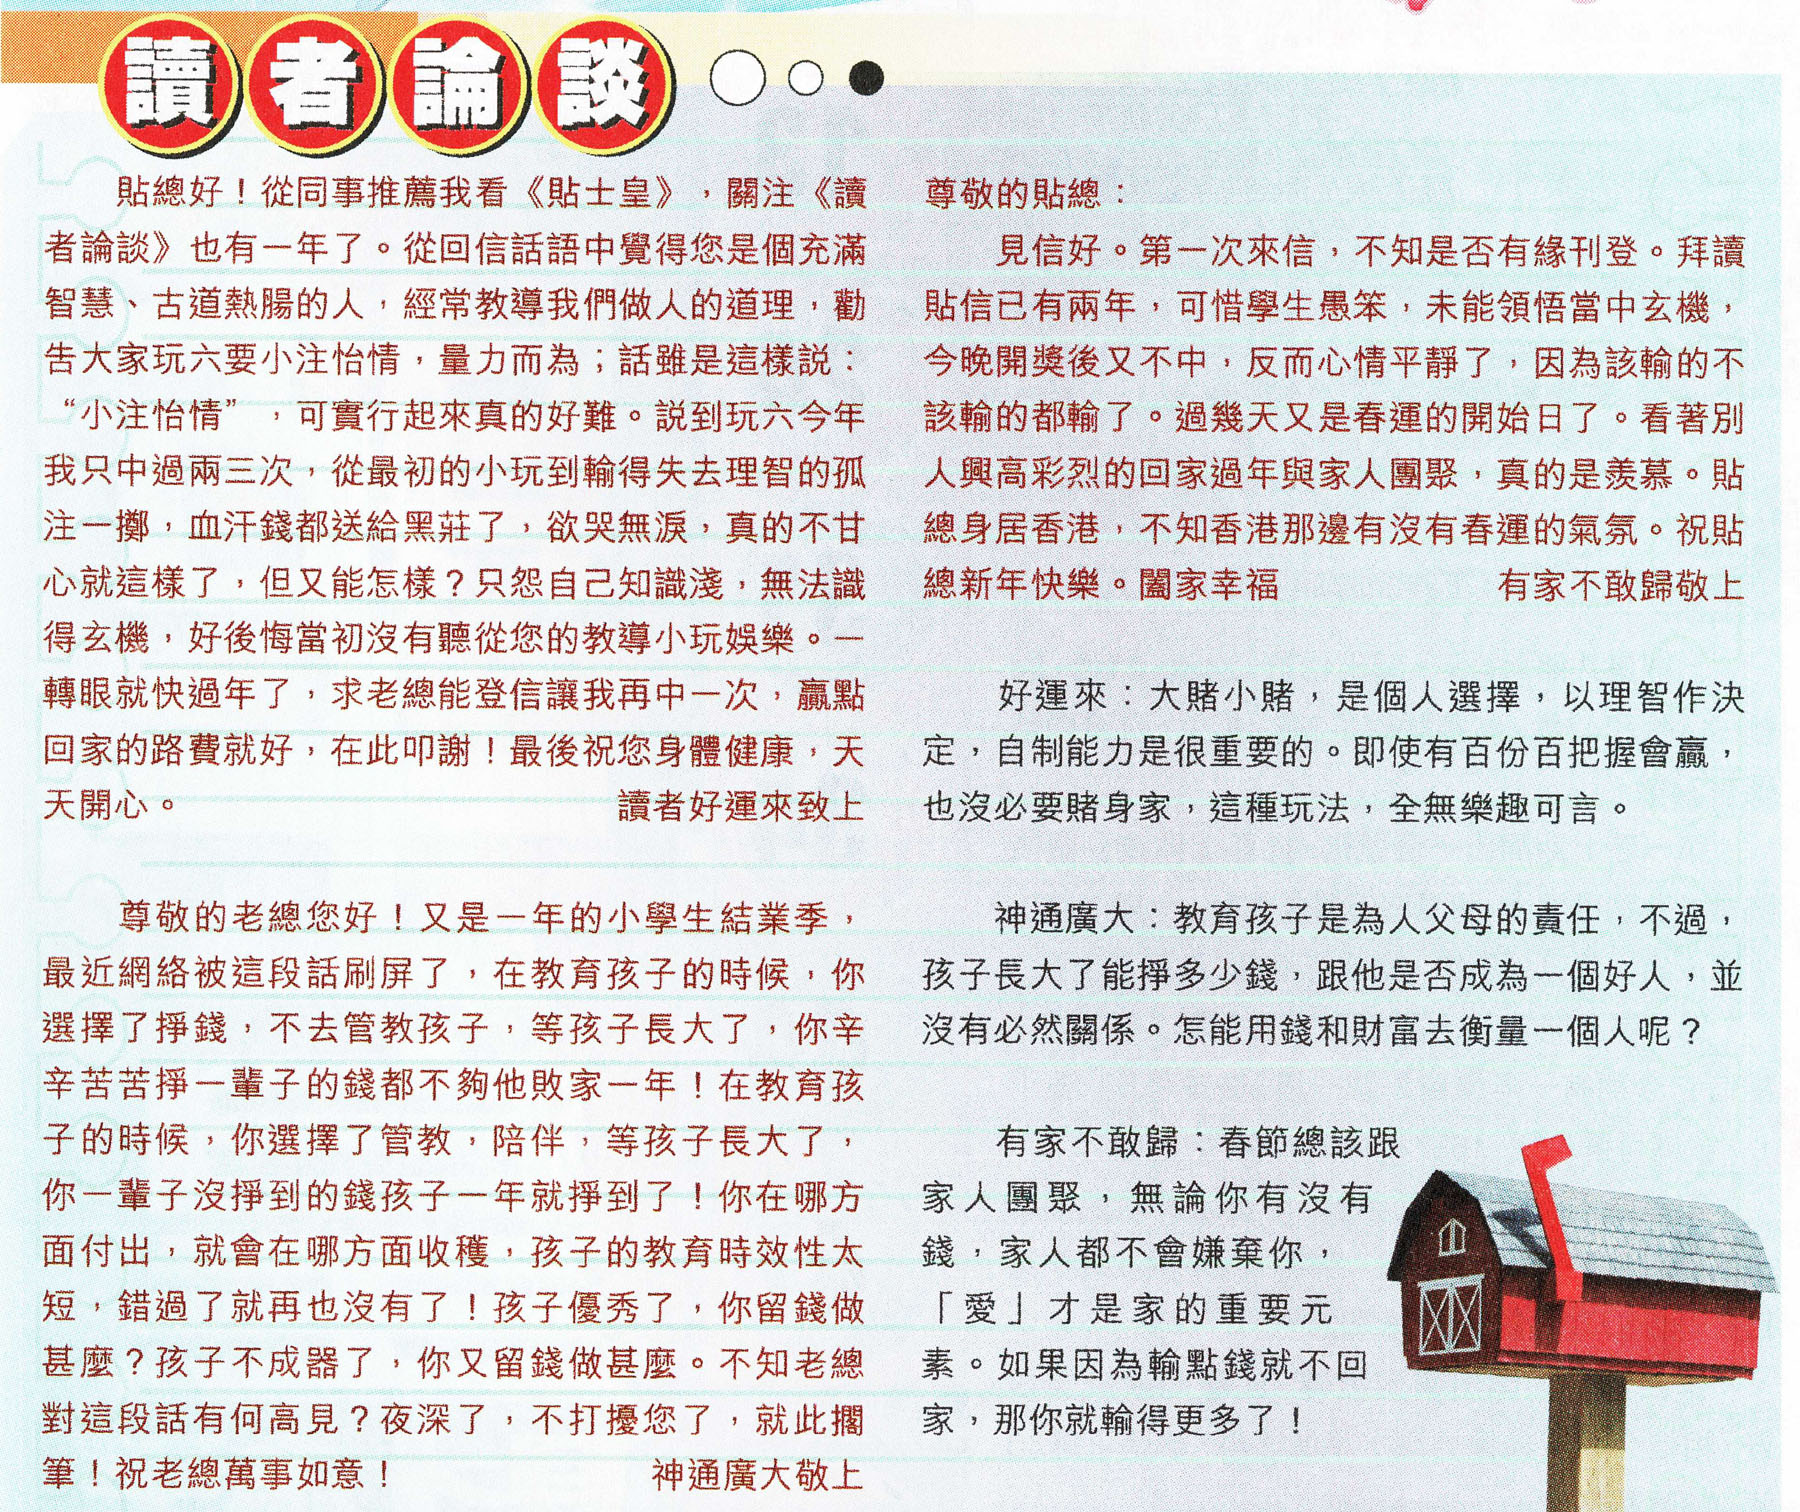 讀者論談
貼總好！從同事推薦我看《貼士皇》，關注《讀
者論談》也有一年了。從回信話語中覺得您是個充滿
智慧、古道熱腸的人，經常教導我們做人的道理，勸
告大家玩六要小注怡情，量力而為；話雖是這樣説：
“小注怡情”，可實行起來真的好難。説到玩六今年
我只中過兩三次，從最初的小玩到輸得失去理智的孤
注一擲，血汗錢都送給黑莊了，欲哭無淚，真的不甘
心就這樣了，但又能怎樣？只怨自己知識淺，無法識
得玄機，好後悔當初沒有聽從您的教導小玩娛樂。一
轉眼就快過年了，求老總能登信讓我再中一次，贏點
回家的路費就好，在此叩謝！最後祝您身體健康，天
天開心。 讀者好運來致上
尊敬的老總您好！又是一年的小學生結業季，
最近網絡被這段話刷屏了，在教育孩子的時候，你
選擇了掙錢，不去管教孩子，等孩子長大了，你辛
辛苦苦掙一輩子的錢都不夠他敗家一年！在教育孩
子的時候，你選擇了管教，陪伴，等孩子長大了，
你一輩子沒掙到的錢孩子一年就掙到了！你在哪方
面付出，就會在哪方面收穫，孩子的教育時效性太
短，錯過了就再也沒有了！孩子優秀了，你留錢做
甚麼？孩子不成器了，你又留錢做甚麼。不知老總
對這段話有何高見？夜深了，不打擾您了，就此擱
筆！祝老總萬事如意！ 神通廣大敬上
尊敬的貼總：
見信好。第一次來信，不知是否有緣刊登。拜讀
貼信已有兩年，可惜學生愚笨，未能領悟當中玄機，
今晚開獎後又不中，反而心情平靜了，因為該輸的不
該輸的都輸了。過幾天又是春運的開始日了。看著別
人興高彩烈的回家過年與家人團聚，真的是羨慕。貼
總身居香港，不知香港那邊有沒有春運的氣氛。祝貼
總新年快樂。闔家幸福 有家不敢歸敬上
好運來：大賭小賭，是個人選擇，以理智作決
定，自制能力是很重要的。即使有百份百把握會贏，
也沒必要賭身家，這種玩法，全無樂趣可言。
神通廣大：教育孩子是為人父母的責任，不過，
孩子長大了能掙多少錢，跟他是否成為一個好人，並
沒有必然關係。怎能用錢和財富去衡量一個人呢？
有家不敢歸：春節總該跟
家人團聚，無論你有沒有
錢，家人都不會嫌棄你，
「愛」才是家的重要元
素。如果因為輸點錢就不回
家，那你就輸得更多了！